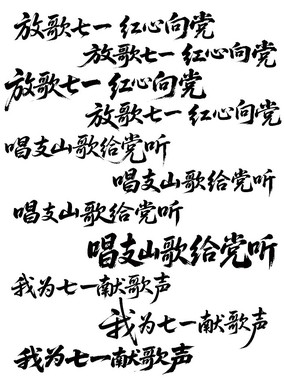 放歌七一 红心向党
放歌七一 红心向党
放歌七一 红心向党
放歌七一 红心向党
唱支山歌给党听
唱支山歌给党听
唱支山歌给党听
唱支山歌给党听
我为七一献歌声
我为七一献歌声
我为七一献歌声